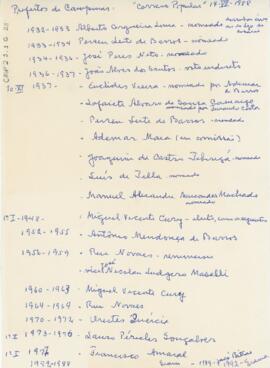 Prefeitos de Campinas: "Correio Popular" 14-VII-1988
1932-1933 Alberto Cerqueira Lima - nomeado
1933-1934 Perseu Leite de Barros - nomeado
1934-1936 - José Pires Neto - nomeado
1936-1937 - João Alves dos Santos - voto indireto
1937 - - Euclides Vieira - nomeado por Adhemar de Barros
- Lafaiete Alvaro de Souza Camargo
nomeado por Fernando Costa
- Perseu Leite de Barros - nomeado
- Ademar Maia (em comissão)
- Joaquim de Castro Tibiriçá - nomeado
- Luís de Tella - nomeado
- Manuel Alexandre Marcondes Machado
nomeado
1º I-1948 - - Miguel Vicente Cury - eleito
1952-1955 - - Antônio Mendonça de Barros
1956-1959 - Ruy Novaes - renunciou
- vice José Nicolau Ludgero Maselli
1960-1963 - Miguel Vicente Cury
1964-1969 - Ruy Novaes
1970-1972 - Orestes Quércia
1º I 1973-1976 - Lauro Péricles Gonçalves
1º I 1977 - Francisco Amaral